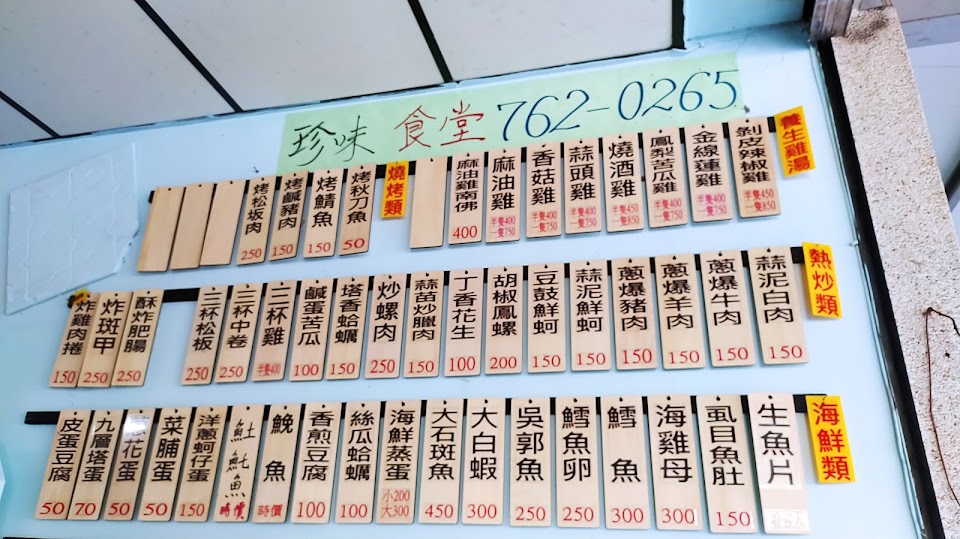 珍味 食堂 762-0265
養生雞湯
剝皮辣椒雞 半隻450 一隻850
金線蓮雞 半隻400 一隻750
鳳梨苦瓜雞 半隻400 一隻750
燒酒雞 半隻450 一隻850
蒜頭雞 半隻400 一隻750
香菇雞 半隻400 一隻750
麻油雞 半隻400 一隻750
麻油雞南佛 400
燒烤類
烤秋刀魚 50
烤鯖魚 150
烤鹹豬肉 150
烤松坂肉 250
熱炒類
蒜泥白肉 150
蔥爆牛肉 150
蔥爆羊肉 150
蔥爆豬肉 150
蒜泥鮮蚵 150
豆鼓鮮蚵 150
胡椒鳳螺 200
丁香花生 100
蒜苗炒臘肉 150
炒螺肉 250
塔香蛤蠣 150
鹹蛋苦瓜 100
三杯雞 半隻400
三杯中卷 250
三杯松板 250
酥炸肥腸 250
炸斑甲 250
炸雞肉捲 150
海鮮類
生魚片
虱目魚肚 150
海雞母 300
鱈魚 300
鱈魚卵 250
吳郭魚 250
大白蝦 300
大石斑魚 450
海鮮蒸蛋 小200 大300
絲瓜蛤蠣 100
香煎豆腐 100
鮸魚 時價
魠魚 時價
洋蔥蚵仔蛋 150
菜脯蛋 50
蔥花蛋 50
九層塔蛋 70
皮蛋豆腐 50